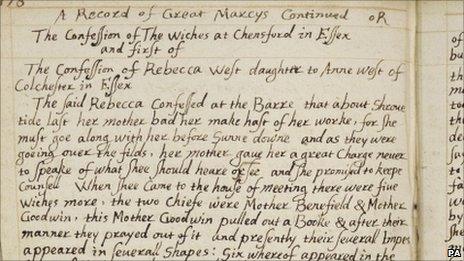 A Record of Great Marcys Continued oR
The Confession of The Wiches at Chensford in Essex
and first of
The Confession of Rebecca West daughter to Anne West of
Colchester in Essex
The said Rebecca Confessed at the Barre that about Shroue
tide last her mother bad her make hast of her worke, for she
must goe along with her before Sunne downe and as they were
goeing over the filds, her mother gaue her a great Charge neuer
to speake of what shee should heare or see and she promised to keepe
Counsell When shee Came to the house of meeting there were fiue
Wiches more, the two Chiefe were Mother Benefield & Mother
Goodwin, this Mother Goodwin pulled out a Booke & after their
manner they prayed out of it and presently their seuerall Impes
appeared in seuerall Shapes: Six whereof appeared in the
PA